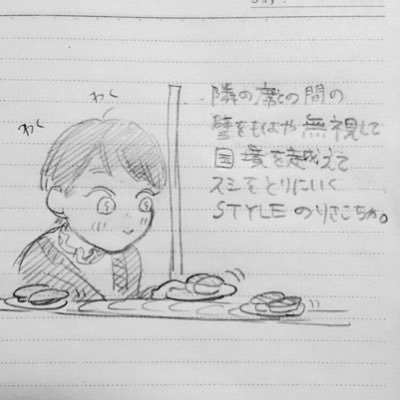 Day:
わく
わく
隣の席との間の
壁をもはや無視して
国境を越えて
スシをとりにいく
STYLEのりさこちゃん。